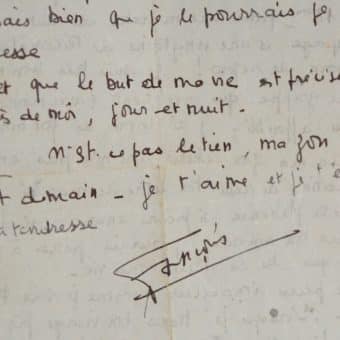 ais bien que je le pourrais je
esse
et que le but de ma vie est précisé
s de moi, jour et nuit.
n'est-ce pas le tien, ma
demain - je t'aime et je t'e
tendresse
François